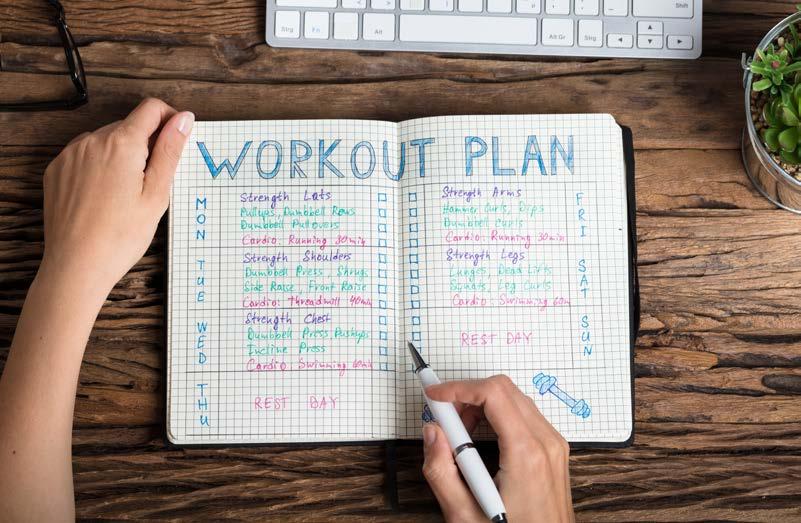 Strg Fn Alt Alt Gr Strg Shift
WORKOUT PLAN
MON
Strength Lats
Pullups, Dumbbell Rows
Dumbbell Pullovers
Cardio: Running 30min
TUE
Strength Shoulders
Dumbbell Press, Shrugs
Side Raise, Front Raise
Cardio: Threadmill 40min
WED
Strength Chest
Dumbbell Press, Pushups
Incline Press
Cardio Swimming 60min
THU
REST DAY
Strength Arms
Hammer Curls, Dips
Dumbbell Curls
Cardio: Running 30min
FRI
Strength Legs
Lunges, Dead Lifts
Squats, Leg Curls
Cardio: Swimming 60m
SAT
REST DAY
SUN